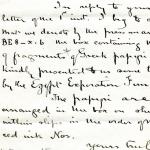 In reply to your
letter of the 1st inst, I beg to s
that we denote by the press mark
BE8-x.6 the box containing
of fragments of Greek papyri
kindly presented to us some
by the Egypt Exploration Fun
The papyri are
arranged in the box on sh
within slips in the order of
ced with Nos.
Yours